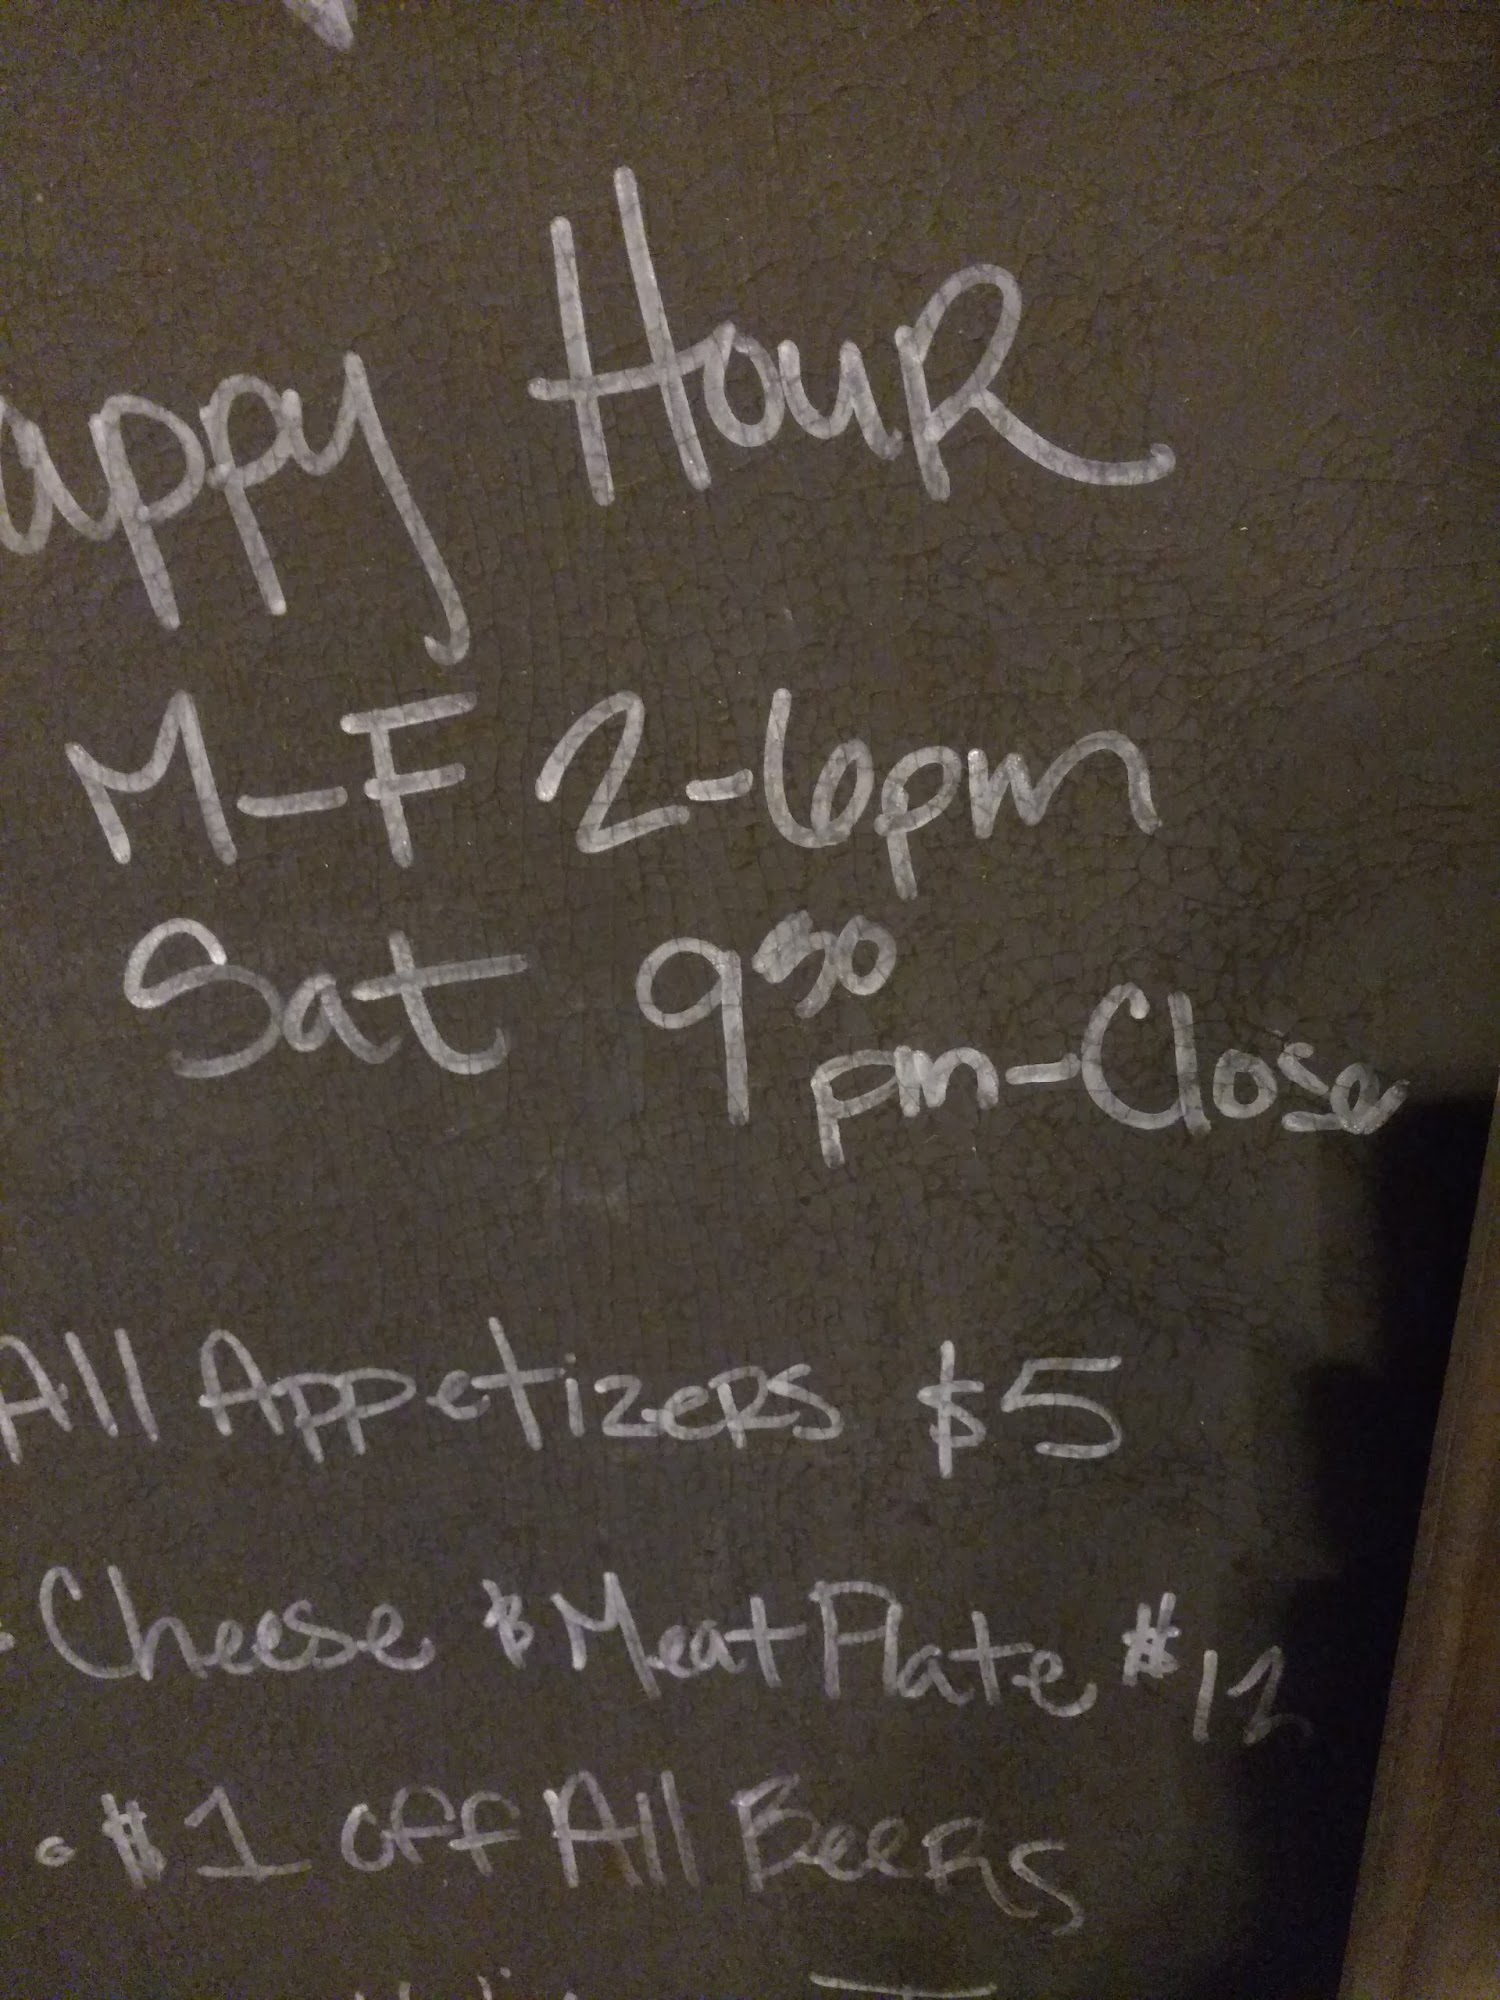 appy Hour
M-F 2-6pm
Sat 9³⁰ pm-Close
All Appetizers $5
Cheese & Meat Plate $12
• $1 off All Beers